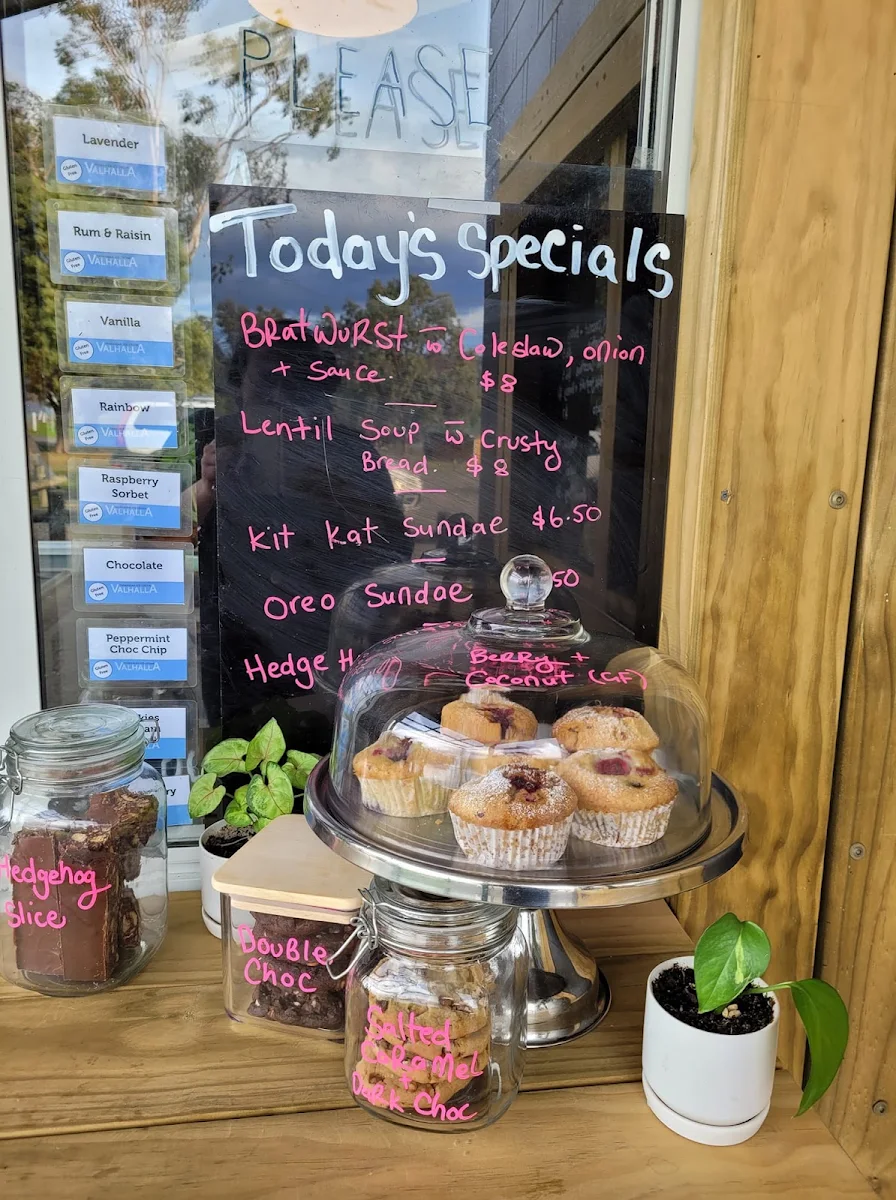 PLEASE
Lavender
Gluten Free VALHALLA
Rum & Raisin
Gluten Free VALHALLA
Vanilla
Gluten Free VALHALLA
Rainbow
Gluten Free VALHALLA
Raspberry
Sorbet
Gluten Free VALHALLA
Chocolate
Gluten Free VALHALLA
Peppermint
Choc Chip
Gluten Free VALHALLA
Today's Specials
BRatWURSt w̄ Coleslaw, onion
+ Sauce. $8
Lentil Soup w̄ Crusty
Bread. $8
Kit Kat Sundae $6.50
Oreo Sundae 50
Hedge H
Berry +
Coconut (GF)
Hedgehog
Slice
Double
Choc
Salted
CaRaMeL
+
DaRk Choc